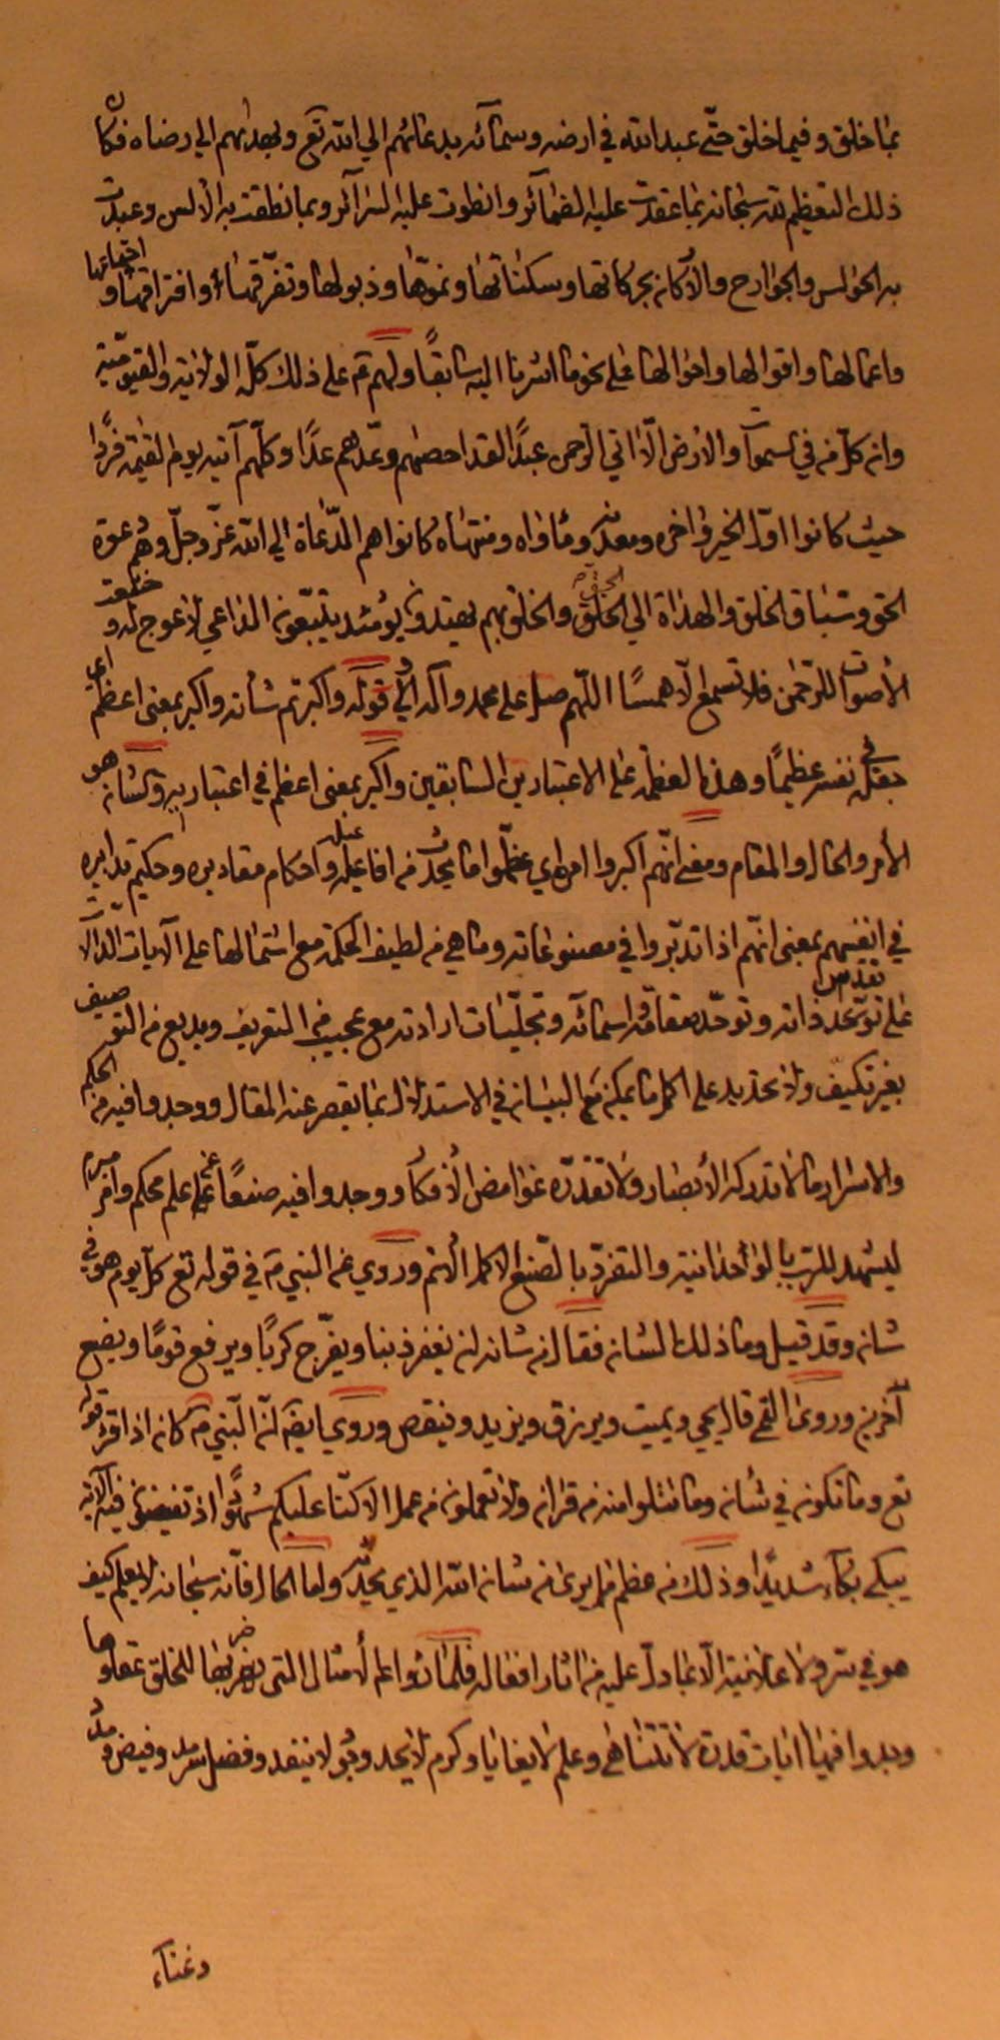 بما خلق وفيما خلق حتّى عبد الله في ارضه وسمآئه بدعائهم الي الله تع وبهداهم الي رضاه فكان
ذلك التعظيم لله سبحانه بما عقدت عليه الضمآئر وانطوت عليه السرآئر وبما نطقت به الألسن وعبدت
به الحواس والجوارح والأركان بحركاتها وسكناتها ونموّها وذبولها وتفرّقها وافتراقها واجتماعها
واعمالها واقوالها واحوالها على نحو ما اشرنا اليه سابقًا ولهم ع على ذلك كلّه الولاية والقيّوميّة
وان كلّ من في السموآت والارض الّا اتي الرحمن عبدًا لقد احصيهم وعدّهم عدًا وكلّهم آتيه يوم القيمة فردًا
حيث كانوا اوّل الخير واخره ومعدنه ومأواه ومنتهاه كانوا هم الدّعاة الي الله عزّ وجلّ وهم دعوة
الحق وسباق الخلق والهداة الي الحق والخلق بهم يهتدون يومئذ يتبّعون الداعي لا عوج له وخشعت
الأصوات للرّحمن فلا تسمع الّا همسًا اللّهم صل على محمد وآله قوله واكبرتم شأنه واكبر بمعنى اعظم اي
جعله في نفسه عظيمًا وهذه العظمة على الاعتبارين السابقين واكبر بمعنى اعظم في اعتباريه والشان هو
الأمر والحال والمقام ومعنى انّهم اكبروا امره اي عظّموا ما يحدث من افاعيله واحكام مقاديره وحكيم تدابيره
في انفسهم بمعنى انّهم اذا تدبّروا في مصنوعاته وما هي من لطيف الحكمة مع اشتمالها على الآيات الدّآلّات
على توحّد ذاته وتوحّد صفاته اسمآئه وتجلّيات ارادته مع عجيب من التعريف وبديع من التوصيف
بغير تكييف ولا تحديد على اكمل ما يمكن مع البيان في الاستدلال بما يقصر عنه المقال ووجدوا فيه من الحكم
والاسرار ما لا تدركه الأبصار ولا تقدّره غوامض الأفكار ووجدوا فيه صنعًا عن علم محكم وامر مبرم
ليشهد للربّ بالوأحدانية والتفرّد بالصّنع الاكمل الأتم وروي عن النبي ص في قوله تع كلّ يوم هو في
شان وقد قيل وما ذلك الشان فقال من شانه ان يغفر ذنبا ويفرّج كربًا ويرفع قومًا ويضع
آخرين وروى القمي قال يحيي ويميت ويرزق ويزيد وينقص وروي ايضً انّ النّبي ص كان اذا قرء قوله
تع وما تكون في شان وما تتلوا منه من قران ولا تعملون من عمل الا كنّا عليكم شهودًا اذ تفيضون فيه الآية
يبكي بكآء شديدًا وذلك من عظم ما يرى من شان الله الذي يحدّد ولما الحال فانّه سبحانه لا يعلم كيف
هو في سرّ ولا علانية الّا بما دلّ عليه من اثار افعاله فلما رأوا علم الأمثال التي يضربها للخلق عقلوها
وجدوا فيها ايات قدرة لا تتناهى وعلم لا يغايا وكرم لا يحد وجود لا ينفد وفضل سرمد وفيض ومدد
وغنآء